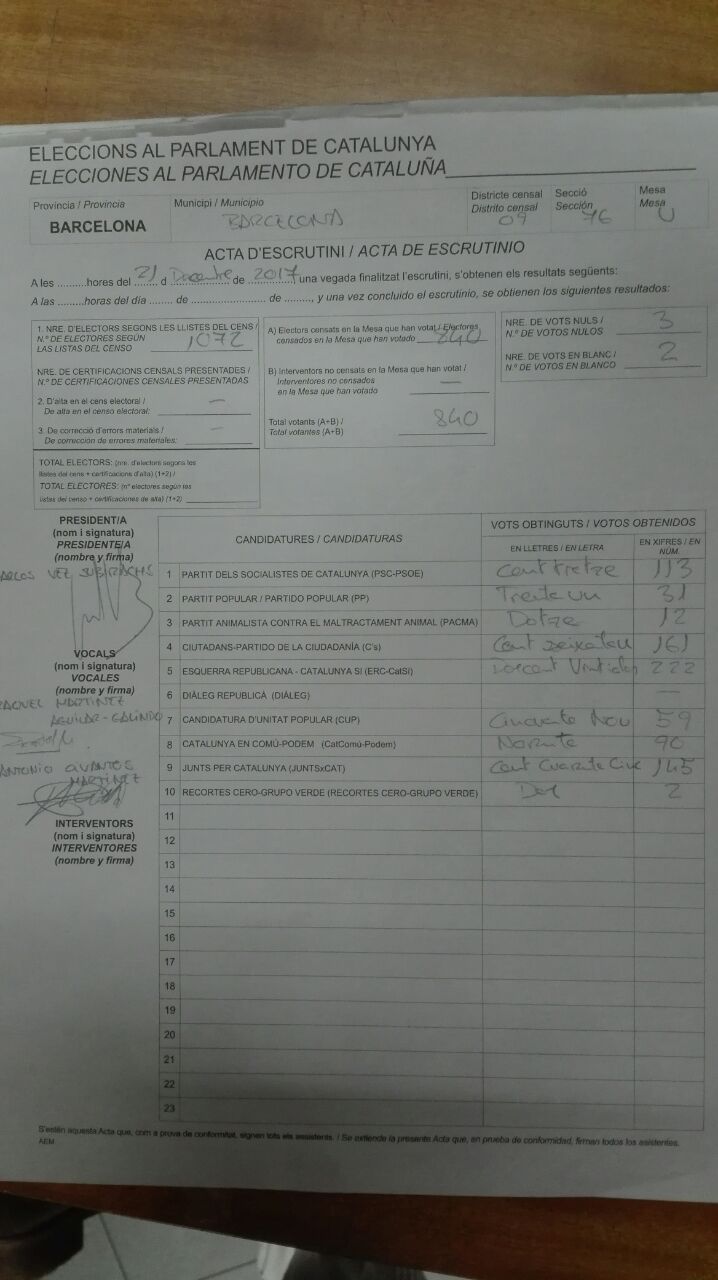 ELECCIONS AL PARLAMENT DE CATALUNYA
ELECCIONES AL PARLAMENTO DE CATALUÑA
Província / Provincia
BARCELONA
Municipi / Municipio
BARCELONA
Districte censal
Distrito censal
09
Secció
Sección
76
Mesa
Mesa
U
ACTA D'ESCRUTINI / ACTA DE ESCRUTINIO
A les .........hores del 21 d Decembre de 2017 una vegada finalitzat l'escrutini, s'obtenen els resultats següents:
A las .........horas del día ...... de ....................... de ........, y una vez concluido el escrutinio, se obtienen los siguientes resultados:
1. NRE. D'ELECTORS SEGONS LES LLISTES DEL CENS /
N.º DE ELECTORES SEGÚN
LAS LISTAS DEL CENSO 1072
NRE. DE CERTIFICACIONS CENSALS PRESENTADES /
N.º DE CERTIFICACIONES CENSALES PRESENTADAS
2. D'alta en el cens electoral / —
De alta en el censo electoral:
3. De correcció d'errors materials / —
De corrección de errores materiales:
TOTAL ELECTORS: (nre. d'electors segons les
llistes del cens + certificacions d'alta) (1+2) /
TOTAL ELECTORES: (nº electores según las
listas del censo + certificaciones de alta) (1+2)
A) Electors censats en la Mesa que han votat / Electores
censados en la Mesa que han votado 840
B) Interventors no censats en la Mesa que han votat /
Interventores no censados —
en la Mesa que han votado
Total votants (A+B) / 840
Total votantes (A+B)
NRE. DE VOTS NULS / 3
N.º DE VOTOS NULOS
NRE. DE VOTS EN BLANC / 2
N.º DE VOTOS EN BLANCO
PRESIDENT/A
(nom i signatura)
PRESIDENTE/A
(nombre y firma)
VOCALS
(nom i signatura)
VOCALES
(nombre y firma)
MARTINEZ
AGUILAR-GALINDO
ANTONIO
MARTINEZ
INTERVENTORS
(nom i signatura)
INTERVENTORES
(nombre y firma)
CANDIDATURES / CANDIDATURAS
VOTS OBTINGUTS / VOTOS OBTENIDOS
EN LLETRES / EN LETRA
EN XIFRES / EN NÚM.
1 PARTIT DELS SOCIALISTES DE CATALUNYA (PSC-PSOE) Cent tretze 113
2 PARTIT POPULAR / PARTIDO POPULAR (PP) Trenta un 31
3 PARTIT ANIMALISTA CONTRA EL MALTRACTAMENT ANIMAL (PACMA) Dotze 12
4 CIUTADANS-PARTIDO DE LA CIUDADANÍA (C's) Cent 161
5 ESQUERRA REPUBLICANA - CATALUNYA SÍ (ERC-CatSí) Doscent Vintidos 222
6 DIÀLEG REPUBLICÀ (DIÀLEG) —
7 CANDIDATURA D'UNITAT POPULAR (CUP) Cinquanta Nou 59
8 CATALUNYA EN COMÚ-PODEM (CatComú-Podem) Noranta 90
9 JUNTS PER CATALUNYA (JUNTSxCAT) Cent Cuaranta Cinc 145
10 RECORTES CERO-GRUPO VERDE (RECORTES CERO-GRUPO VERDE) Dos 2
11
12
13
14
15
16
17
18
19
20
21
22
23
S'estén aquesta Acta que, com a prova de conformitat, signen tots els assistents. / Se extiende la presente Acta que, en prueba de conformidad, firman todos los asistentes.
AEM